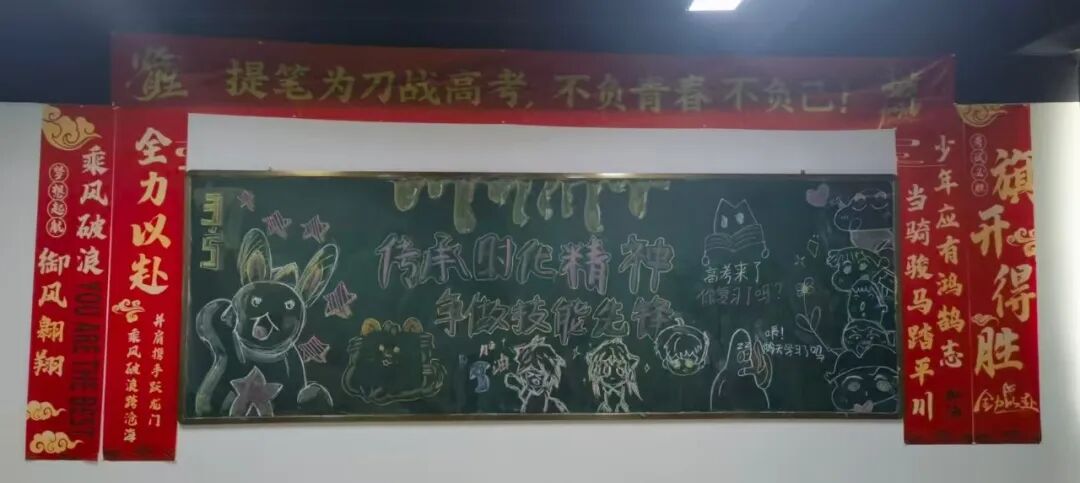 提笔为刀战高考，不负青春 不负己！
乘风破浪
梦想起航
御风翱翔
YOU ARE THE BEST
全力以赴
并肩携手跃龙门
乘风破浪路沧海
传承时代精神
争做技能先锋
高考来了
你复习了吗？
加油
嘿！
少年应有鸿鹄志
当骑骏马踏平川
旗开得胜
全力以赴